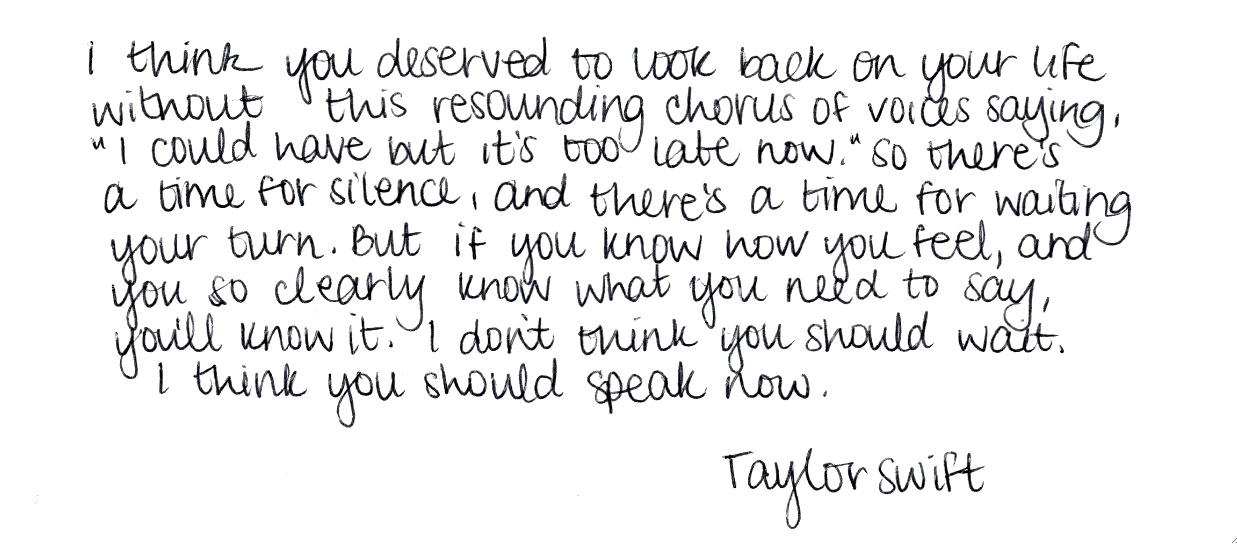 i think you deserved to look back on your life
without this resounding chorus of voices saying,
"I could have but it's too late now." so there's
a time for silence, and there's a time for waiting
your turn. But if you know how you feel, and
you so clearly know what you need to say,
you'll know it. I don't think you should wait.
I think you should speak now.
Taylor swift